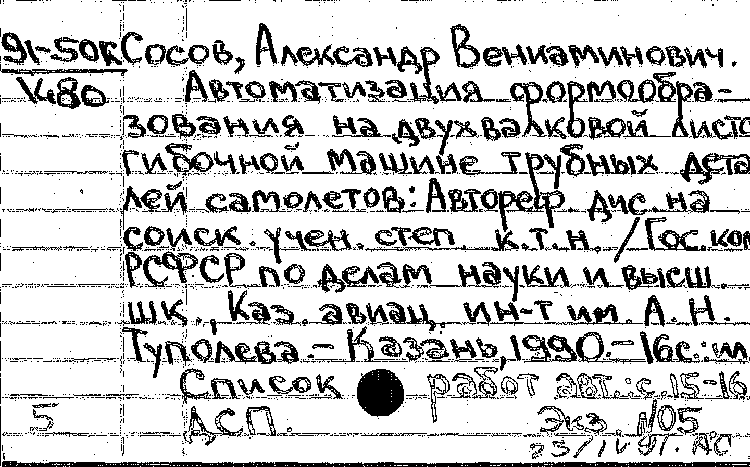 91-50к Сосов, Александр Вениаминович.
К80 Автоматизация формообра-
зования на двухвалковой листо
гибочной машине трубных дета
лей самолетов: Автореф. дис. на
соиск. учен. степ. к.т.н. / Гос. ком
РСФСР по делам науки и высш.
шк., Каз. авиац. ин-т им. А. Н.
Туполева. – Казань, 1990. – 16с.: ил
Список работ авт.: с. 15-16
5 ДСП. Экз. №05
23/IV 91. АС